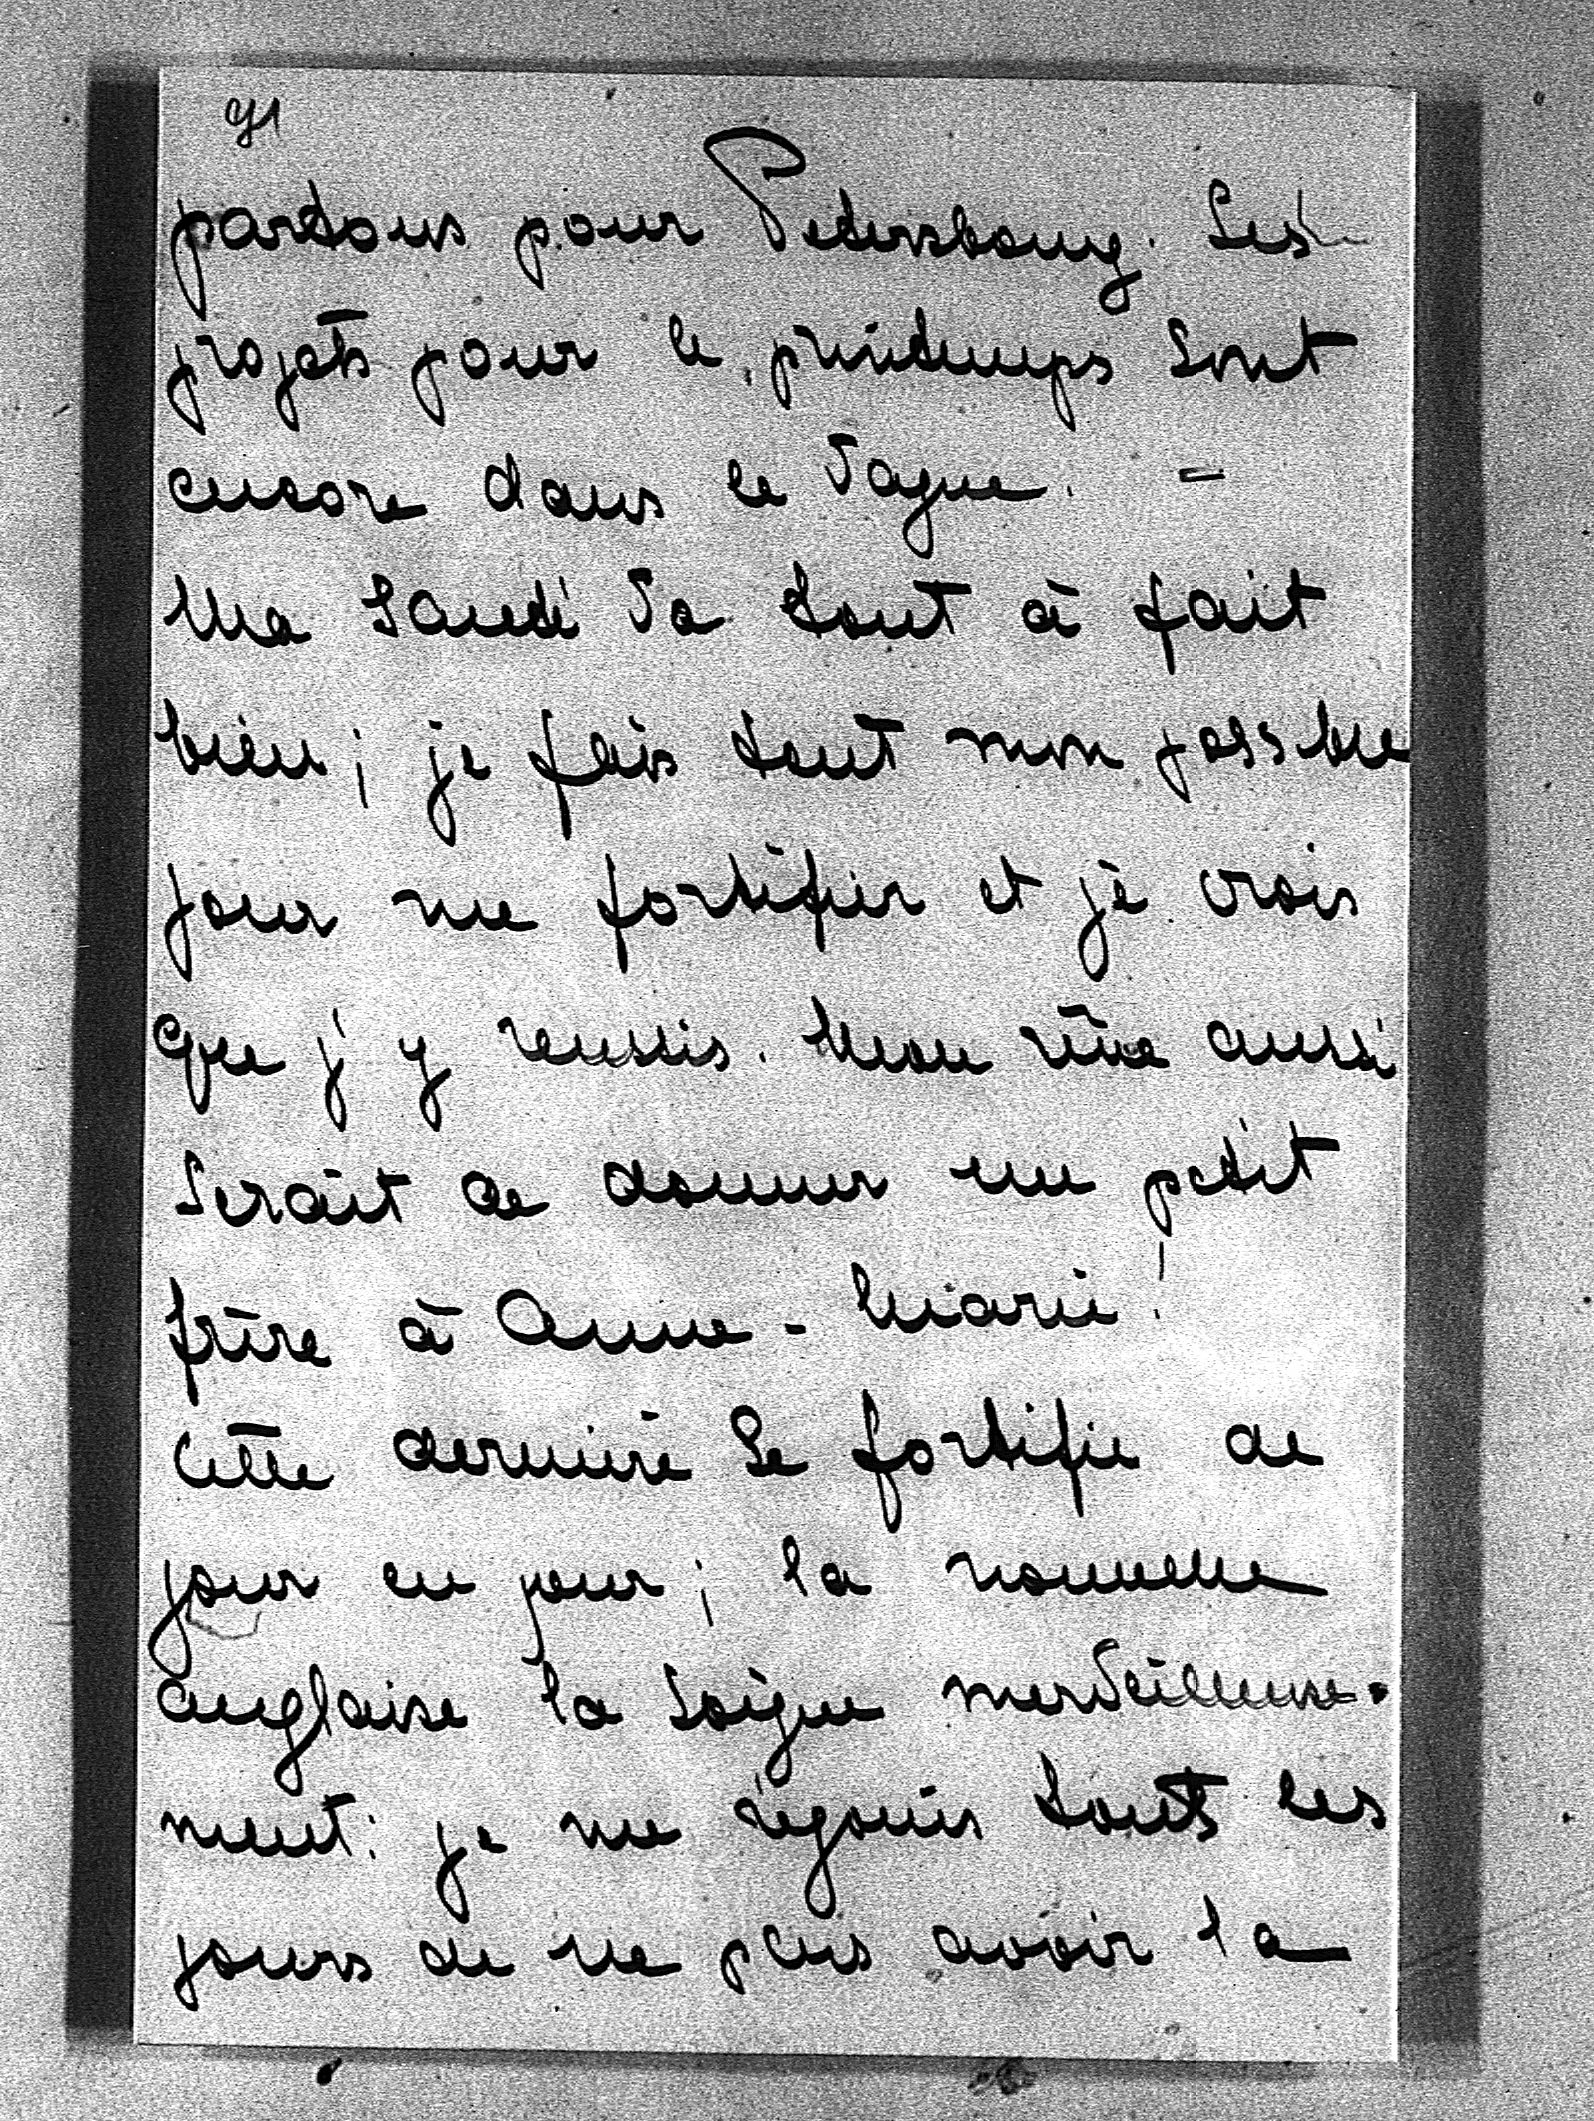 91
partons pour Petersbourg. Les
projets pour le printemps sont
encore dans le vague. =
Ma santé va tout à fait
bien; je fais tout mon possible
pour me fortifier et je crois
que j'y reussis. Mon rêve aussi
serait de donner un petit
frère à Anne-Marie!
Cette dernière se fortifie de
jour en jour; la nouvelle
anglaise la soigne merveilleuse-
ment: je me réjouis touts les
jours de ne plus avoir la